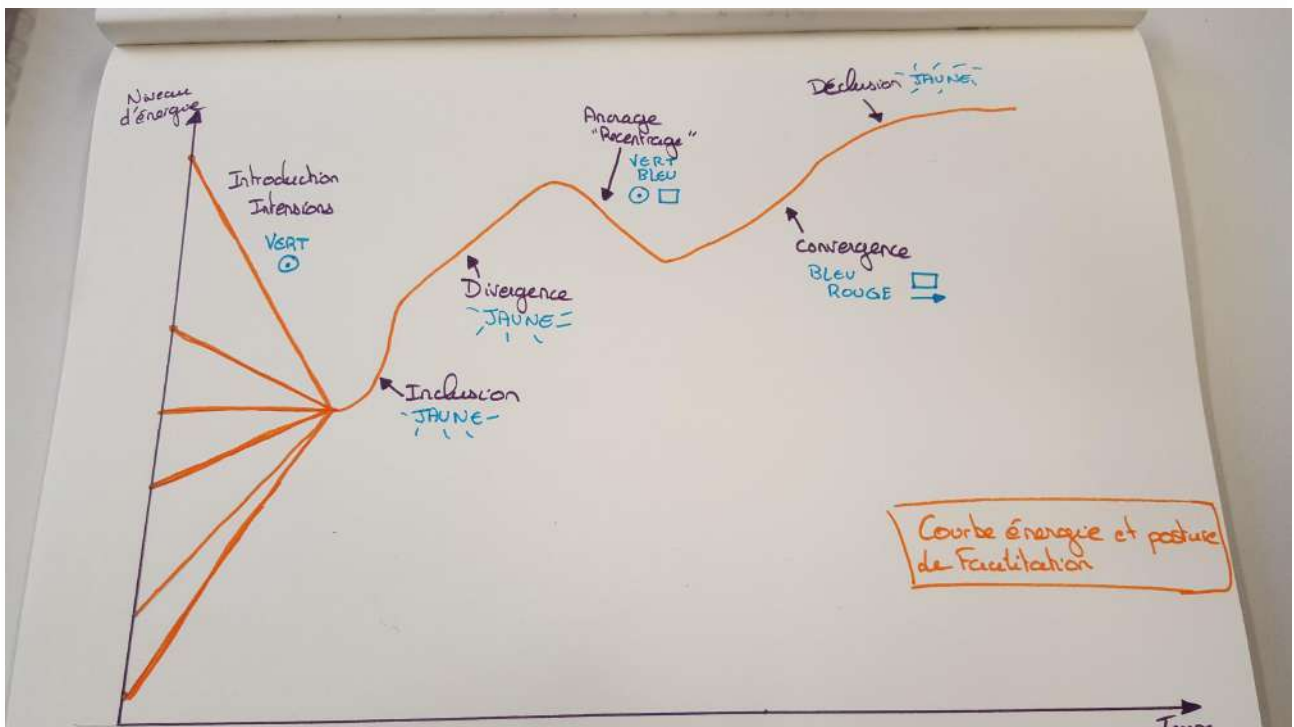 Niveau
d'énergie
Introduction
Intensions
VERT
Inclusion
JAUNE
Divergence
JAUNE
Ancrage
"Recentrage"
VERT
BLEU
Convergence
BLEU
ROUGE
Déclusion JAUNE
Courbe énergie et posture
de Facilitation